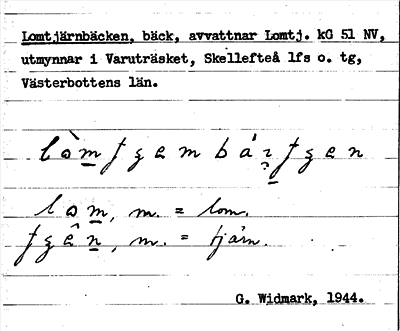 Lomtjärnbäcken, bäck, avvattnar Lomtj. kG 51 NV,
utmynnar i Varuträsket, Skellefteå lfs o. tg,
Västerbottens län.
m. = lom.
m. = tjärn.
G. Widmark, 1944.